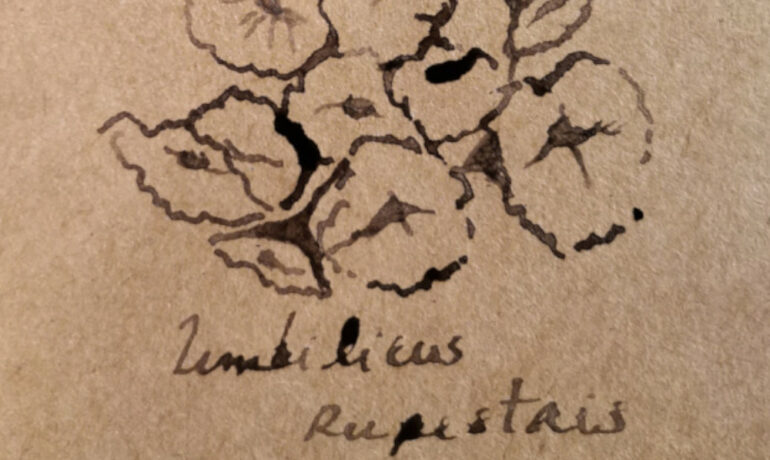 Umbilicus
Rupestris